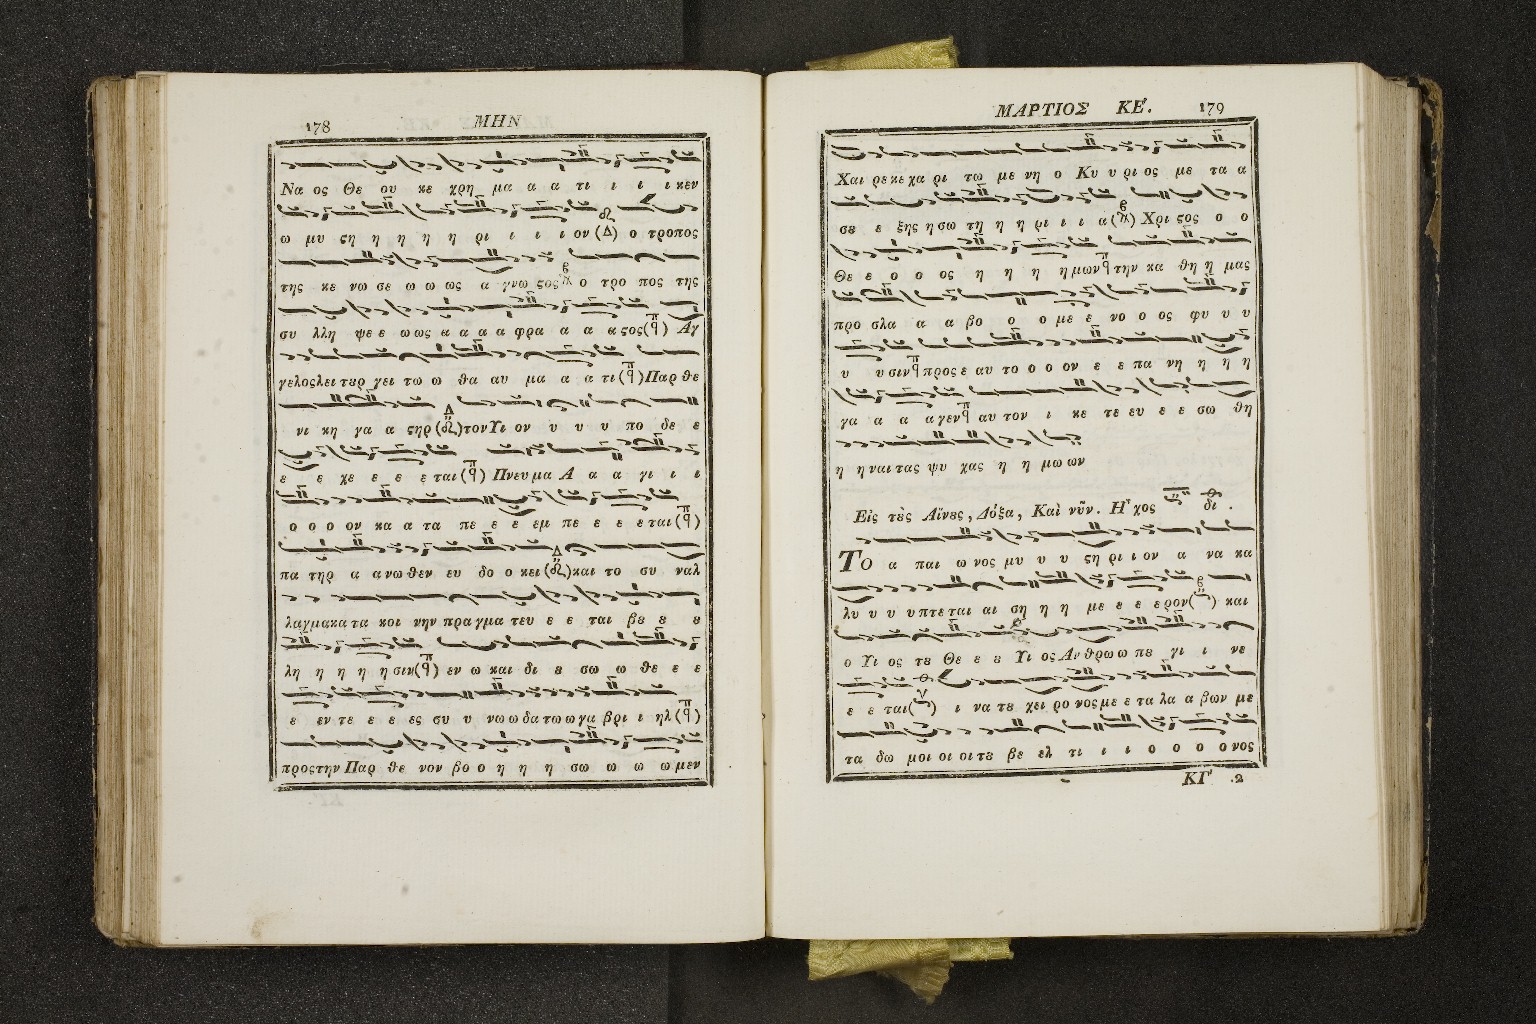 178 ΜΗΝ
Να ος Θε ου κε χρη μα α α τι ι ι ι κεν
ω μυ ςη η η η η ρι ι ι ι ον (Δ) ο τροπος
της κε νω σε ω ω ως α γνω ςος ο τρο πος της
συ λλη ψε ε ω ως α α α α φρα α α α ςος (π) Αγ
γελοςλει τȣρ γει τω ω θα αυ μα α α τι (π) Παρ θε
νι κη γα α ςηρ ( ) τον Υι ον υ υ υ πο δε ε
ε ε χε ε ε ε ται (π) Πνευ μα Α α α γι ι ι
ο ο ο ον κα α τα πε ε ε εμ πε ε ε ε ται (π)
πα τηρ α α νωθεν ευ δο ο κει ( ) και το συ ναλ
λαγμακατα κοι νην πραγμα τευ ε ε ται βȣ ȣ ȣ
λη η η η η σιν (π) εν ω και δι ȣ σω ω θε ε ε
ε εν τε ε ε ες συ υ νω ω δα τω ω γα βρι ι ηλ (π)
προςτην Παρ θε νον βο ο η η η σω ω ω ω μεν
ΜΑΡΤΙΟΣ ΚΕ΄. 179
Χαι ρε κε χα ρι τω με νη ο Κυ υ ρι ος με τα α
σȣ ε ξης η σω τη η η ρι ι ι α ( ) Χρι ςος ο ο
Θε ε ο ο ος η η η η μων π την κα θη η μας
προ σλα α α βο ο ο με ε νο ο ος φυ υ υ
υ υ σιν π προς ε αυ το ο ο ον ε ε πα νη η η η
γα α α α γεν π αυ τον ι κε τε ευ ε ε σω θη
η η ναι τας ψυ χας η η μω ων
Εἰς τȣ̀ς Αἴνȣς, Δόξα, Καὶ νῦν. Ἦχος δι .
ΤΟ α παι ω νος μυ υ υ ςη ρι ι ον α να κα
λυ υ υ υ πτε ται αι ση η η με ε ε ε ρον ( ) και
ο Υι ος τȣ Θε ε ȣ Υι ος Αν θρω ω πȣ γι ι νε
ε ε ται ( ) ι να τȣ χει ρο νος με ε τα λα α βων με
τα δω μοι οι οι τȣ βε ελ τι ι ι ο ο ο ο νος
ΚΓ 2